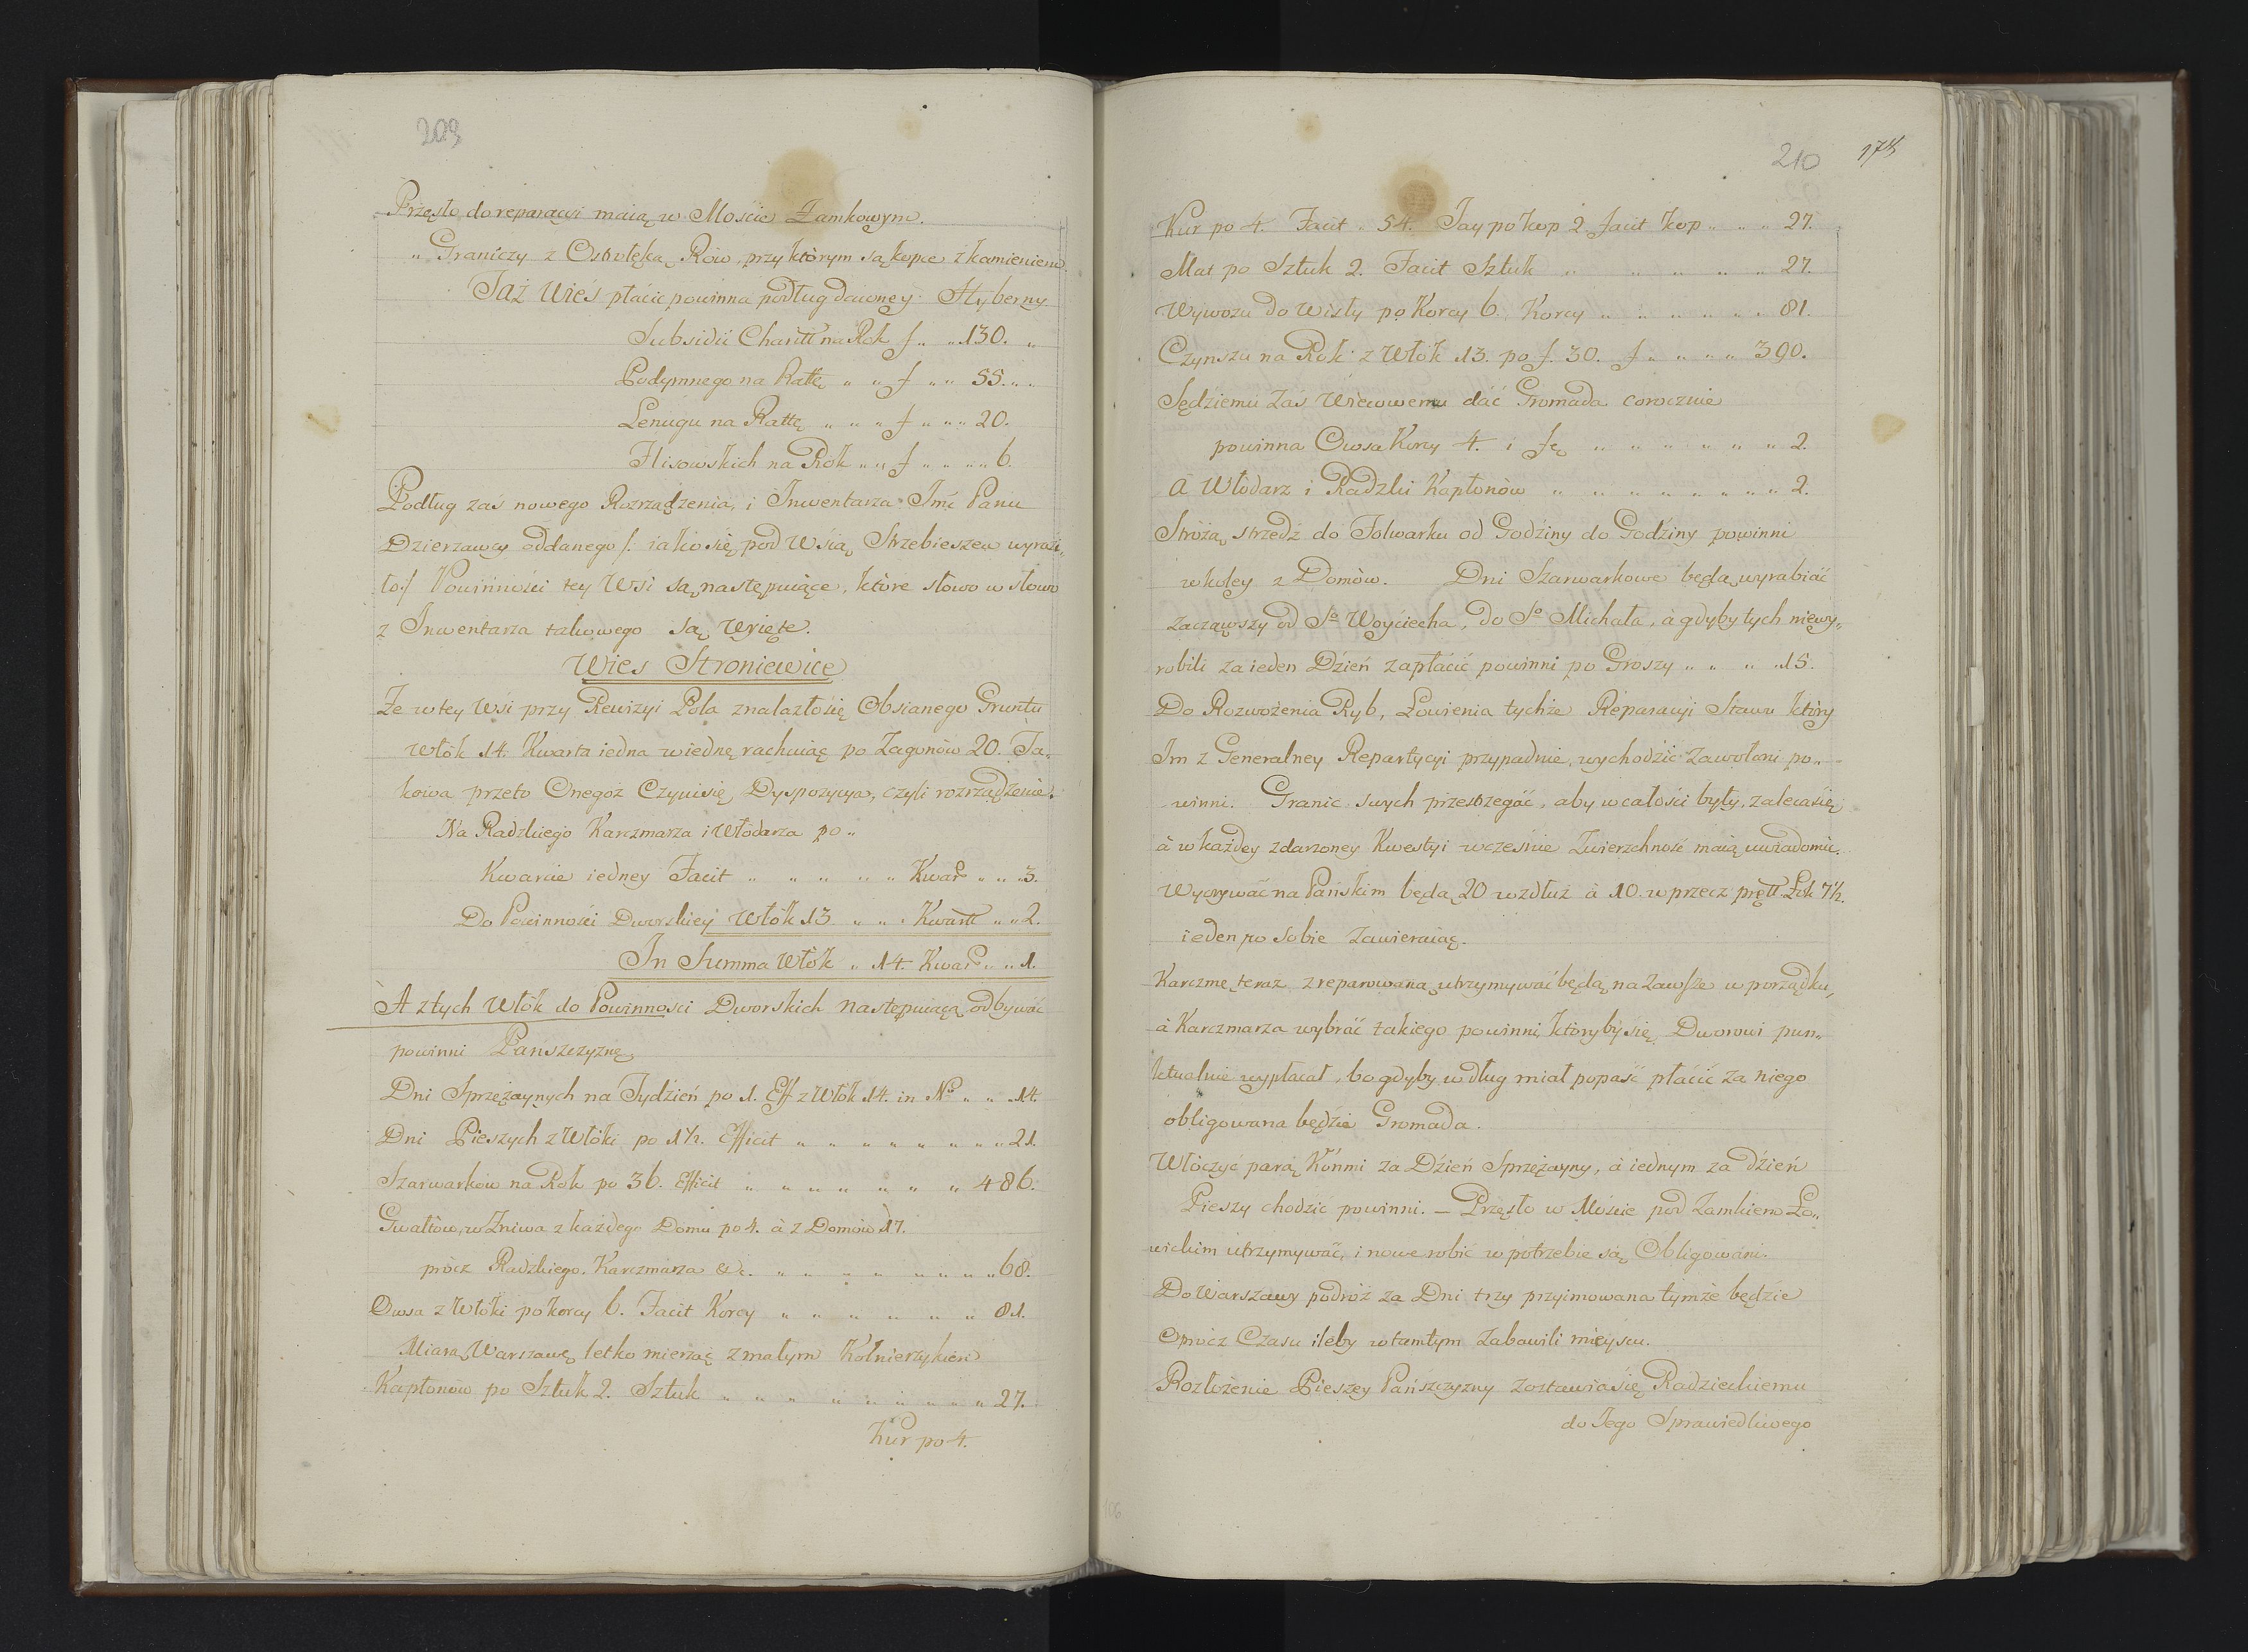 209
Przęsło do reparacyi maią w Moście Zamkowym.
„ Graniczy z Ostrołęką Rów, przy którym są kopce z kamieniem.
Taż Wieś płácić powinna podług dawney Hyberny
Subsidii Charitt na Rok f „ „ 130. „
Podymnego na Rattę „ „ f „ „ 55. „ „
Lenugu na Rattę „ „ „ f „ „ „ 20.
Flisowskich na Rok „ „ f „ „ „ „ 6.
Podług zaś nowego Rozrządzenia, i Inwentarza Imć Panu
Dzierzawcy oddanego /: iako się pod Wsią Strzebieszew wyrazi„
ło :/ Powinności tey Wsi są następuiące, które słowo w słowo
z Inwentarza takowego są wzięte.
Wies Stroniewice
Ze w tey Wsi przy Rewizyi Pola znalazło się Obsianego Gruntu
Włók 14. Kwarta iedna w iednę rachuiąc po Zagonów 20. Ta„
kowa przeto Onegoż Czyni się Dyspozycya, czyli rozrządzenie.
Na Radzkiego Karczmarza i Włodarza po „
Kwarcie iedney Facit „ „ „ „ „ Kwar „ „ „ 3.
Do Powinności Dworskiey Włók 13 „ „ „ Kwartt „ „ 2.
In Summa Włók „ 14. Kwar „ „ 1.
A z tych Włók do Powinnosci Dworskich następuiącą odbywać
powinni Panszczyznę
Dni Sprzężaynych na Tydzień po 1. Eff z Włók 14. in No „ „ 14.
Dni Pieszych z Włóki po 1 1/2. Efficit „ „ „ „ „ „ „ „ 21.
Szarwarków na Rok po 36. Efficit „ „ „ „ „ „ „ 486.
Gwałtów, w Zniwa z każdego Domu po 4. à z Domów 17.
prócz Radzkiego. Karczmarza &c. „ „ „ „ „ „ „ „ 68.
Owsa z Włóki po korcy 6. Facit Korcy „ „ „ „ „ „ „ 81.
Miarą Warszawę letko mierzać z małym Kołnierzykiem
Kapłonów po Sztuk 2. Sztuk „ „ „ „ „ „ „ „ „ 27.
Kur po 4.
210
Kur po 4. Facit „ 54. Jay po kop 2 facit kop „ „ „ 27.
Mat po Sztuk 2. Facit Sztuk „ „ „ „ „ 27.
Wywozu do Wisły po Korcy 6. Korcy „ „ „ „ „ „ 81.
Czynszu na Rok z Włók 13. po f. 30. f „ „ „ „ 390.
Sędziemu zaś Wiecowemu dáć Gromada corocznie
powinna Owsa Korcy 4. i Ję „ „ „ „ „ „ „ 2.
à Włodarz i Radzki Kapłonów „ „ „ „ „ „ „ „ 2.
Stróżą strzedz do Folwarku od Godziny do Godziny powinni
w koley z Domów. Dni Szarwarkowe będą wyrabiáć
zacząwszy od So Woyciecha, do So Michała, à gdyby tych niewy„
robili za ieden Dzień zapłácić powinni po Groszy „ „ „ 15.
Do Rozwożenia Ryb, Łowienia tychże Reparacyi Stawu który
Im z Generalney Repartycyi przypadnie, wychodzić zawołani po„
winni. Granic swych przestrzegáć, aby w całości były, zaleca się
à w każdey zdarzoney Kwestyi wcześnie Zwierzchność maią uwiadomić.
Wyorywáć na Pańskim będą 20 wzdłuż à 10. w przecz prętt Łok 7 1/2.
ieden po sobie zawieraiąc.
Karczmę teraz zreparowaną utrzymywać będą na zawsze w porządku,
à Karczmarza wybráć takiego powinni, któryby się Dworowi pun„
ktualnie wypłacał, bo gdyby w dług miał popaść płácić za niego
obligowana będzie Gromada.
Włóczyć parą Końmi za Dzień Sprzężayny, à iednym za dzień
Pieszy chodzić powinni. — Przęsło w Moście pod Zamkiem Ło„
wickim utrzymywáć, i nowe robić w potrzebie są Obligowani.
Do Warszawy podróż za Dni trzy przyimowana tymże będzie
Oprócz Czasu ileby w tamtym zabawili mieyscu.
Rozłożenie Pieszey Pańszczyzny zostawia się Radzieckiemu
do Jego Sprawiedliwego
106